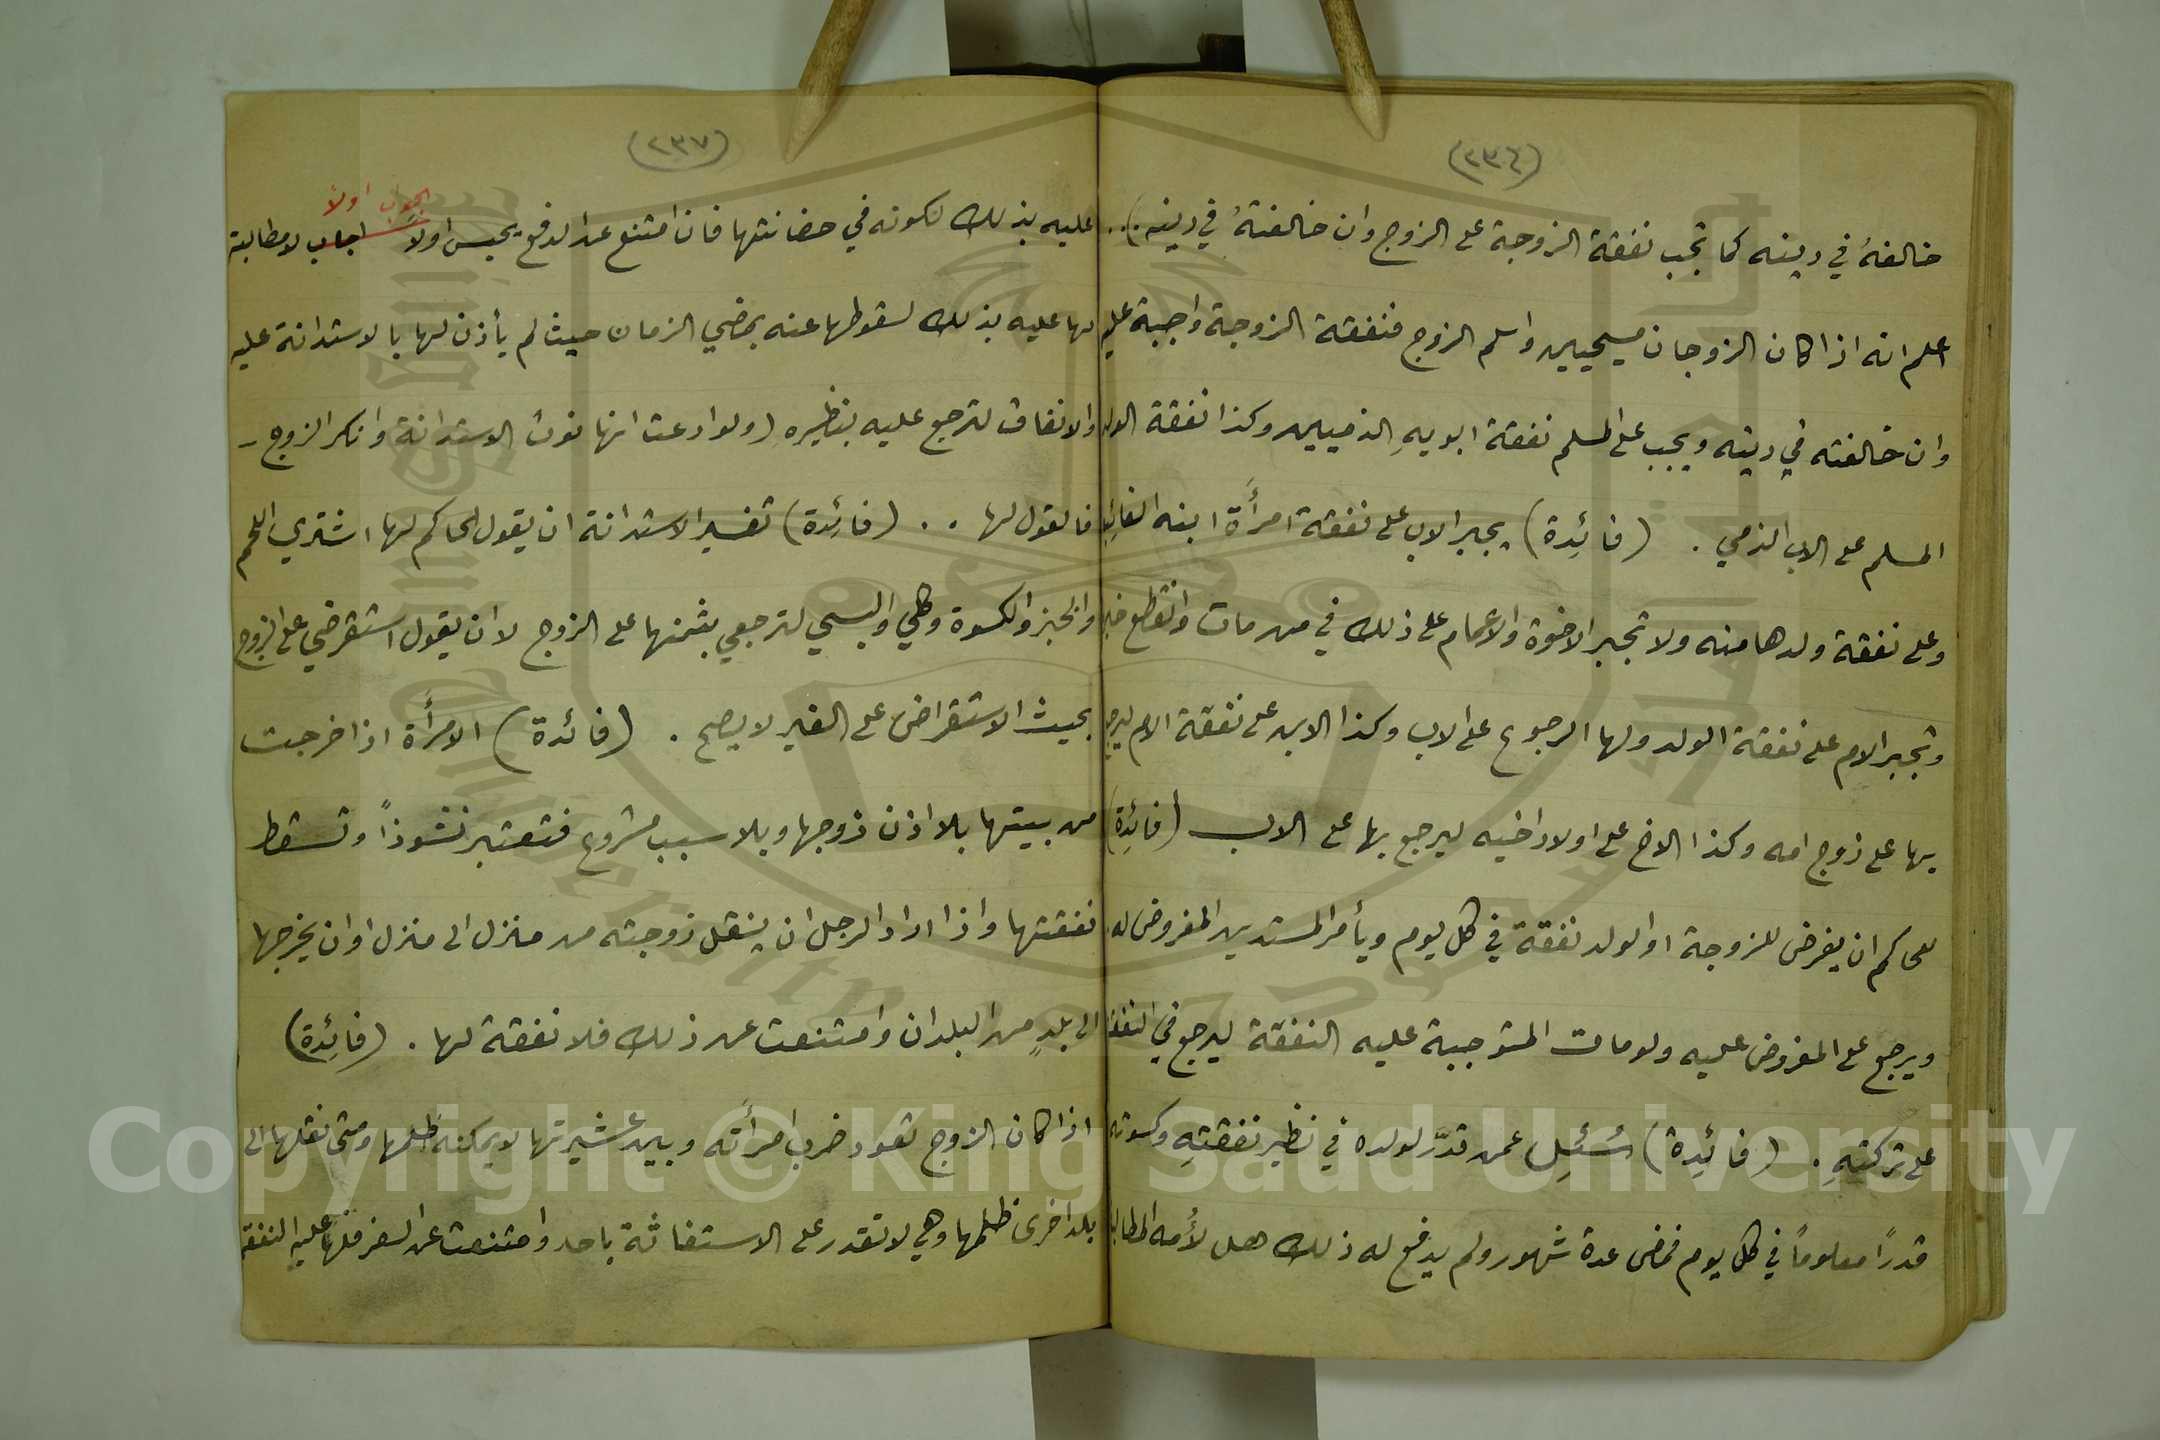 (٢٣٦)
خالفهُ في دينه كما تجب نفقة الزوجة على الزوج وان خالفتهُ في دينه.)..
اعلم انه اذا كان الزوجان مسيحيين واسلم الزوج فنفقة الزوجة واجبة عليه
وان خالفته في دينه ويجب على المسلم نفقة ابويهِ الذميين وكذا نفقة الولد
المسلم على الاب الذمي . (فائِدة) يجبر الاب على نفقة امرأَة ابنه الغائِب
وعلى نفقة ولدها منه ولا تجبر الاخوة والاعمام على ذلك في من مات وانقطع خبره
وتجبر الام على نفقة الولد ولها الرجوع على الاب وكذا الابن على نفقة الام ليرجع
بها على زوج امه وكذا الاخ على اولاد اخيه ليرجع بها على الاب (فائِدة)
للحاكم ان يفرض للزوجة او الولد نفقة في كل يوم ويأمر المستدين المفروض له
ويرجع على المفروض عليه ولو مات المتوجبة عليه النفقة ليرجع في النفقة
على تركتهِ . (فائِدة) سُئِل عمن قدَّر لولده في نظير نفقتهِ وكسوته
قدرًا معلومًا في كل يوم فمضى عدة شهور ولم يدفع له ذلك هل لأُمه المطالبة
(٢٣٧)
الجواب اولاً
عليه بذلك لكونه في حضانتها فان امتنع عن الدفع يحبس اولاً اجاب لا مطالبة
لها عليه بذلك لسقوطها عنه بمضي الزمان حيث لم يأذن لها بالاستدانة عليه
والانفاق لترجع عليه بنظيرهِ (ولو ادعت انها نوت الاستدانة وانكر الزوج –
فالقول لها . . (فائِدة) تفسير الاستدانة ان يقول الحاكم لها اشتري اللحم
والخبز والكسوة وكلي والبسي لترجعي بثمنها على الزوج لا ان يقول استقرضي على الزوج
بحيث الاستقراض على الغير لا يصح . (فائدة) الامرأَة اذا خرجت
من بيتها بلا اذن زوجها وبلا سبب مشروع فتعتبر نشوذاً وتسقط
نفقتها واذا اراد الرجل ان ينقل زوجته من منزل الى منزل او ان يخرجها
الى بلدٍ من البلدان وامتنعت عن ذلك فلا نفقة لها . (فائِدة)
اذا كان الزوج تعود ضرب امرأَته وبين عشيرتها لا يمكنه ظلمها ومتى نقلها الى
بلد اخرى ظلمها وهي لا تقدر على الاستغاثة باحد وامتنعت عن السفر فلها عليه النفقة
Copyright © King Saud University